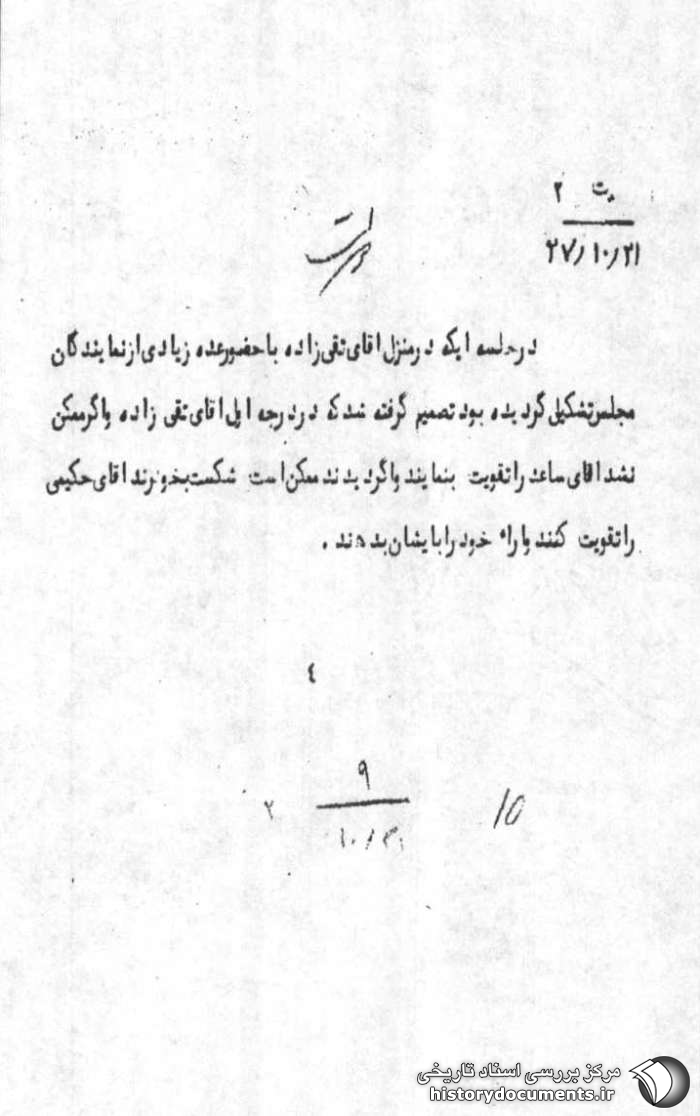 ت ۲
۲۷/۱۰/۲۱
درجلسه ایکه درمنزل اقای تقی زاده باحضورعده زیادی ازنمایندگان
مجلس تشکیل گردیده بود تصمیم گرفته شد که دردرجه اول اقای تقی زاده واگرممکن
نشد اقای ساعد راتقویت بنمایند واگردیدند ممکن است شکست بخورند اقای حکیمی
راتقویت کنند وراء خود رابایشان بدهند .
٤
۹
۲
۱۵
مرکز بررسی اسناد تاریخی
historydocuments.ir